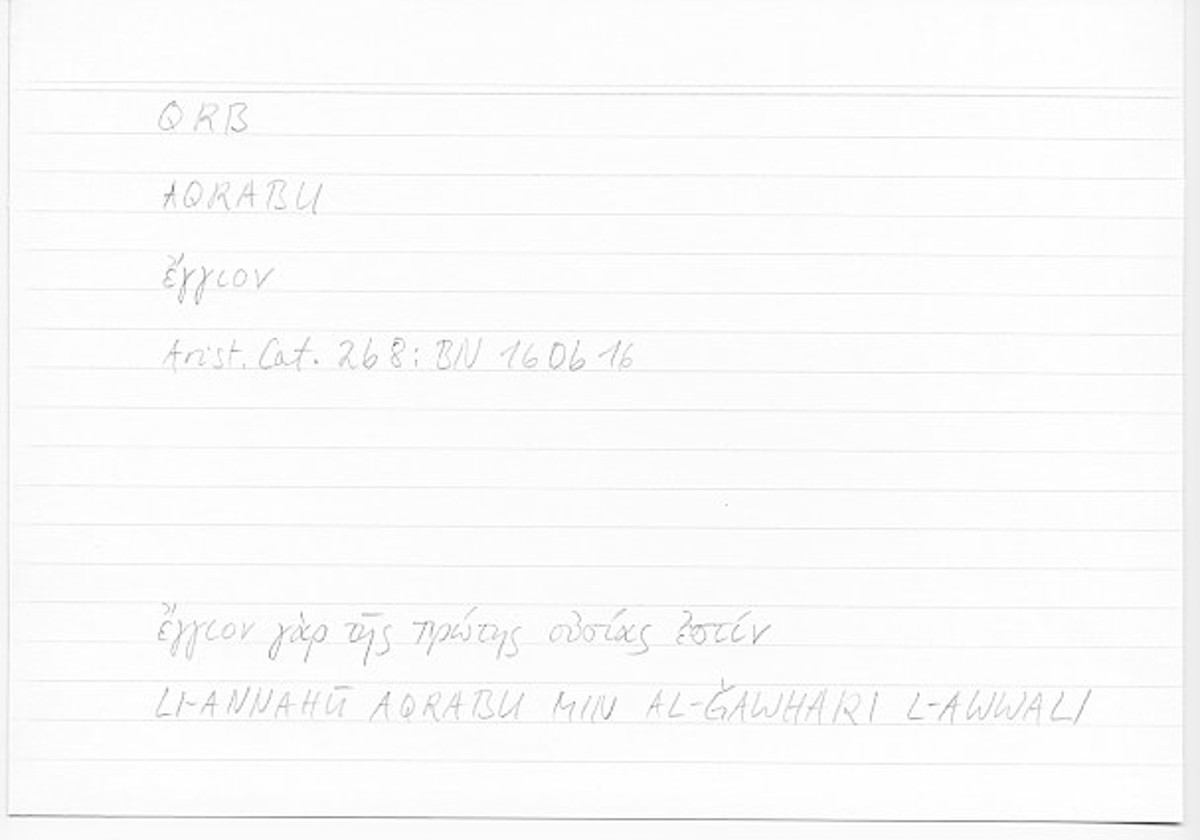 QRB
AQRABU
ἔγγιον
Arist. Cat. 2b8: BN 160b16
ἔγγιον γὰρ τῆς πρώτης οὐσίας ἐστίν
LI-ANNAHŪ AQRABU MIN AL-ǦAWHARI L-AWWALI